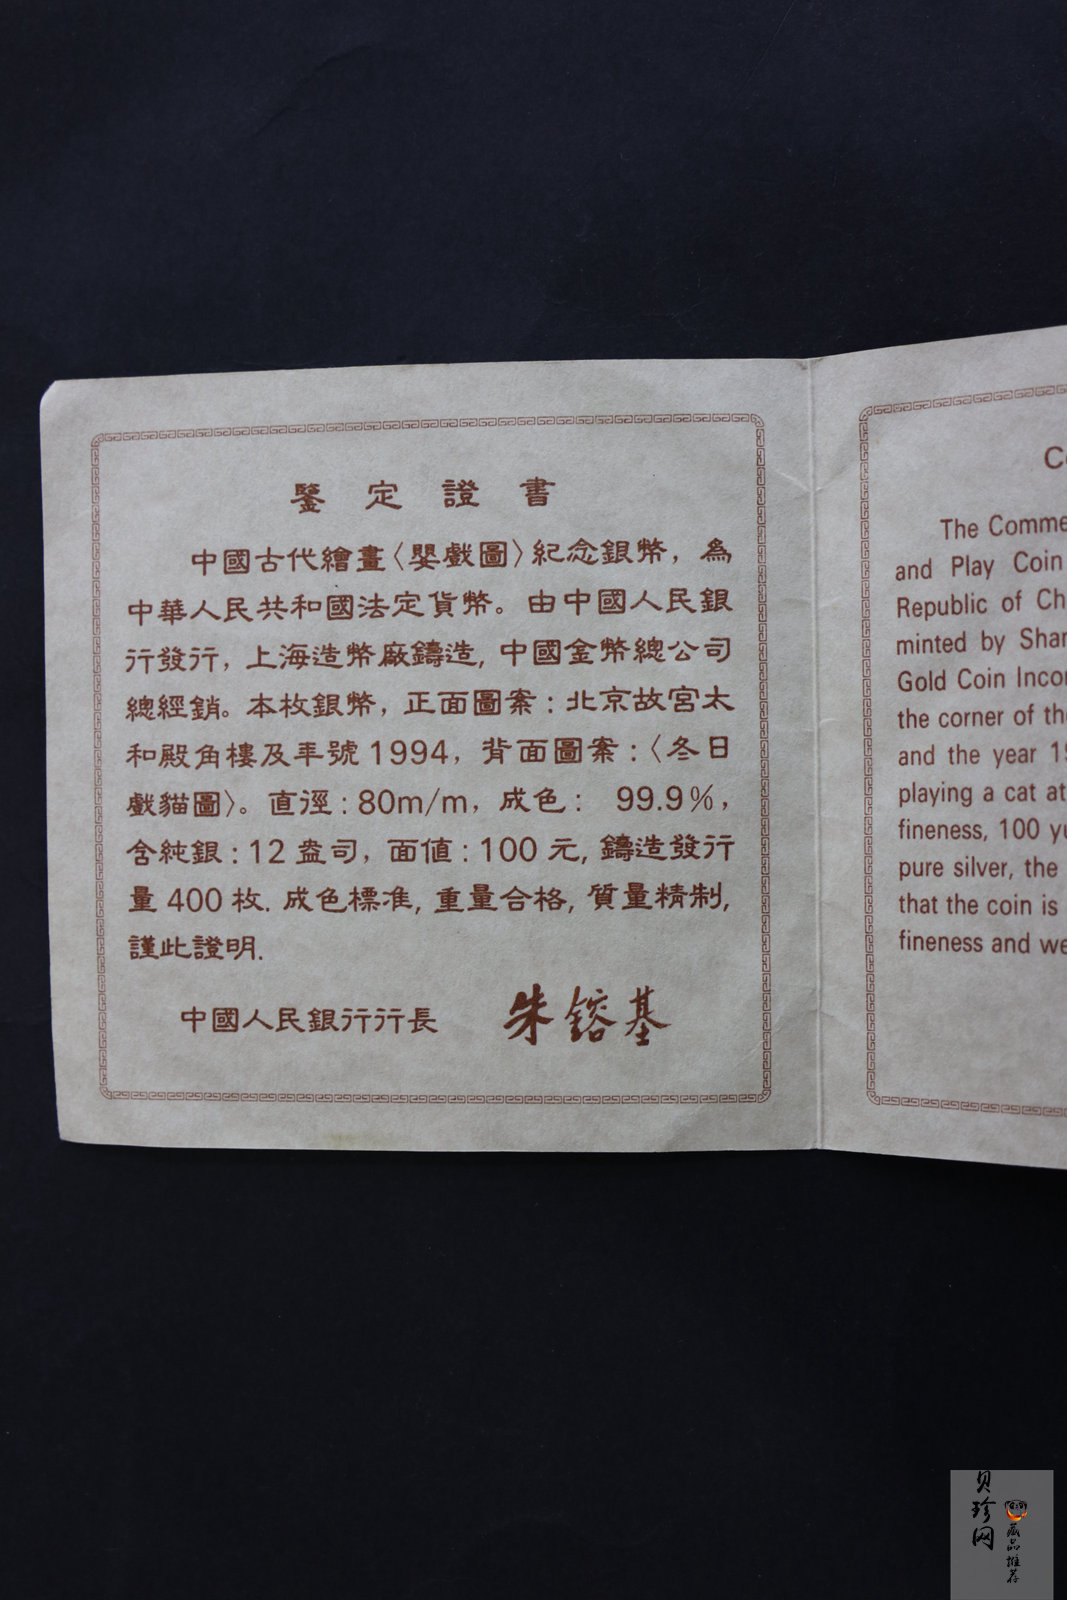 鑒定證書
中國古代繪畫〈嬰戲圖〉紀念銀幣，為
中華人民共和國法定貨幣。由中國人民銀
行發行，上海造幣廠鑄造，中國金幣總公司
總經銷。本枚銀幣，正面圖案：北京故宮太
和殿角樓及年號1994，背面圖案：〈冬日
戲貓圖〉。直徑：80m/m，成色： 99.9%，
含純銀：12盎司，面值：100元，鑄造發行
量400枚．成色標准，重量合格，質量精制，
謹此證明．
中國人民銀行行長 朱鎔基
The Comme
and Play Coin
Republic of Ch
minted by Shan
Gold Coin Incor
the corner of the
and the year 19
playing a cat at
fineness, 100 yu
pure silver, the
that the coin is
fineness and we
贝珍网
藏品推荐